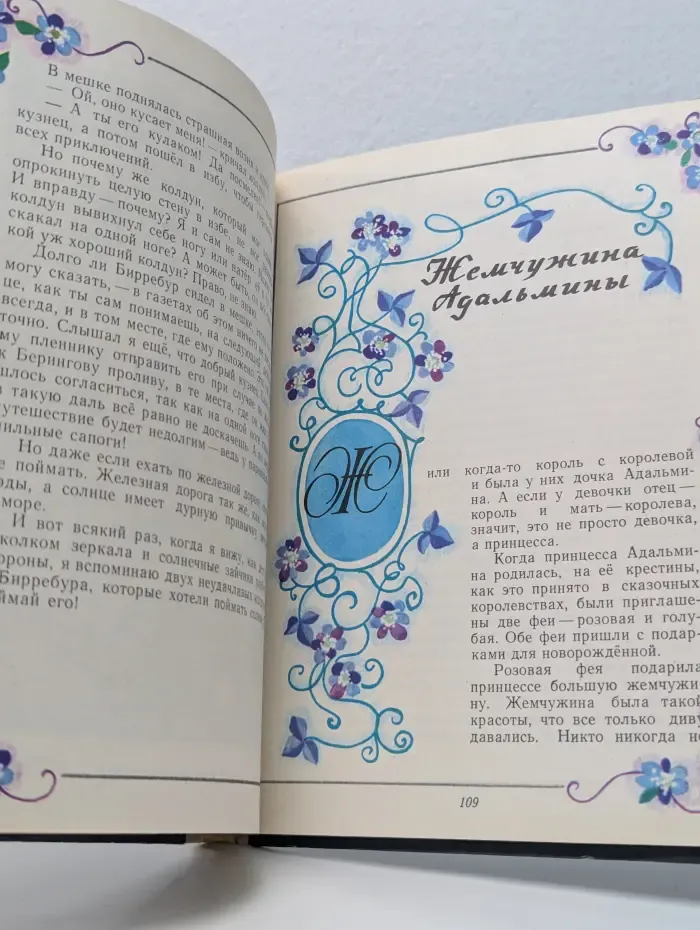 В мешке поднялась страшная возня
— Ой, оно кусает меня! — кричал
— А ты его кулаком! Да посмелей
кузнец, а потом пошёл в избу, чтобы
всех приключений.
Но почему же колдун, который мог
опрокинуть целую стену в избе, не
И вправду — почему? Я и сам не знаю.
колдун вывихнул себе ногу или натёр её
скакал на одной ноге? А может быть, он
кой уж хороший колдун? Право, не знаю
Долго ли Бирребур сидел в мешке,
могу сказать, — в газетах об этом ничего не
це, как ты сам понимаешь, на следующее
всегда, и в том месте, где ему положено
точно. Слышал я ещё, что добрый кузнец
му пленнику отправить его при случае
к Берингову проливу, в те места, где
шлось согласиться, так как на одной ноге
такую даль всё равно не доскачешь. А
утешествие будет недолгим — ведь у
мильные сапоги!
Но даже если ехать по железной дороге,
не поймать. Железная дорога так же, как
ды, а солнце имеет дурную привычку
море.
И вот всякий раз, когда я вижу, как
колком зеркала и солнечные зайчики
ороны, я вспоминаю двух неудачливых
Бирребура, которые хотели поймать солнце
ймай его!
Жемчужина
Адальмины
Ж
или когда-то король с королевой
и была у них дочка Адальми-
на. А если у девочки отец —
король и мать — королева,
значит, это не просто девочка,
а принцесса.
Когда принцесса Адальми-
на родилась, на её крестины,
как это принято в сказочных
королевствах, были приглаше-
ны две феи — розовая и голу-
бая. Обе феи пришли с подар-
ками для новорождённой.
Розовая фея подарила
принцессе большую жемчужи-
ну. Жемчужина была такой
красоты, что все только диву
давались. Никто никогда не
109